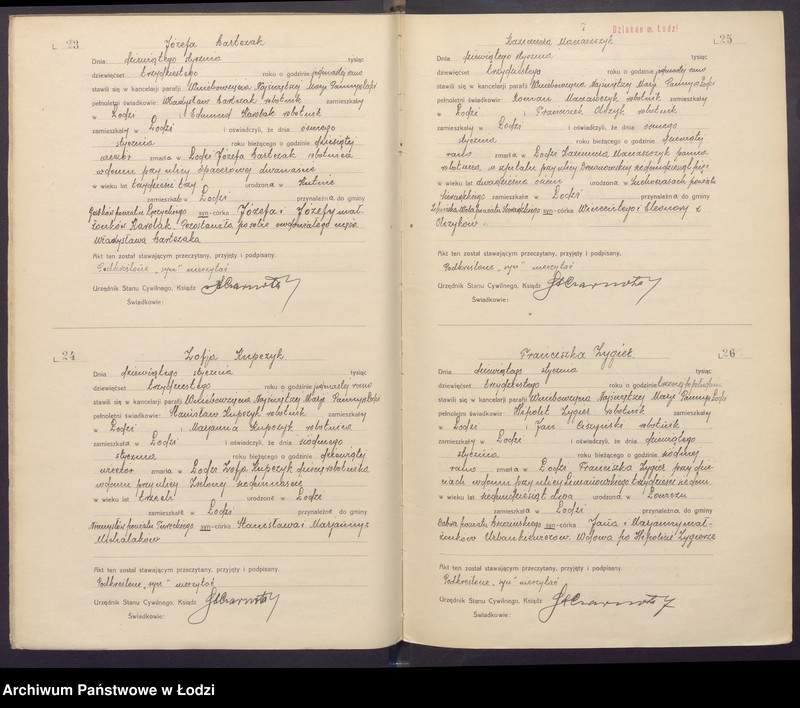 L 23
Józefa Bartczak
Dnia dziewiątego stycznia tysiąc
dziewięćset trzydziestego roku o godzinie jedenastej rano
stawili się w kancelarji parafji Wniebowzięcia Najświętszej Marji Panny w Łodzi
pełnoletni świadkowie: Władysław Bartczak robotnik zamieszkały
w Łodzi i Edmund Karolak robotnik
zamieszkały w Łodzi i oświadczyli, że dnia ósmego
stycznia roku bieżącego o godzinie dziesiątej
wieczór zmarła w Łodzi Józefa Bartczak robotnica
w domu przy ulicy Spacerowej dwanaście
w wieku lat trzydzieści trzy urodzona w Kutnie
zamieszkała w Łodzi przynależna do gminy
powiatu Łęczyckiego syn-córka Józefa i Józefy mał-
żonków Karolak. Pozostawiła po sobie owdowiałego męża
Władysława Bartczaka
Akt ten został stawającym przeczytany, przyjęty i podpisany.
Podkreślone „syn” nieczytać
Urzędnik Stanu Cywilnego, Ksiądz
Świadkowie:
L 24
Zofja Kupczyk
Dnia dziewiątego stycznia tysiąc
dziewięćset trzydziestego roku o godzinie jedenastej rano
stawili się w kancelarji parafji Wniebowzięcia Najświętszej Marji Panny w Łodzi
pełnoletni świadkowie: Stanisław Kupczyk robotnik zamieszkały
w Łodzi i Marjanna Kupczyk robotnica
zamieszkała w Łodzi i oświadczyli, że dnia siódmego
stycznia roku bieżącego o godzinie dziewiątej
wieczór zmarła w Łodzi Zofja Kupczyk dziecię robotnika
w domu przy ulicy Zielonej siedemnaście
w wieku lat trzech urodzona w Łodzi
zamieszkała w Łodzi przynależna do gminy
powiatu Tureckiego syn-córka Stanisława i Marjanny z
Michalaków
Akt ten został stawającym przeczytany, przyjęty i podpisany.
Podkreślone „syn” nieczytać
Urzędnik Stanu Cywilnego, Ksiądz
Świadkowie:
7
Dziekan m. Łodzi
L 25
Kazimiera Maciaszczyk
Dnia dziewiątego stycznia tysiąc
dziewięćset trzydziestego roku o godzinie jedenastej rano
stawili się w kancelarji parafji Wniebowzięcia Najświętszej Marji Panny w Łodzi
pełnoletni świadkowie: Roman Maciaszczyk robotnik zamieszkały
w Łodzi i Franciszek Olczyk robotnik
zamieszkały w Łodzi i oświadczyli, że dnia ósmego
stycznia roku bieżącego o godzinie dziewiątej
rano zmarła w Łodzi Kazimiera Maciaszczyk panna
robotnica, w szpitalu przy ulicy Drewnowskiej siedemdziesiąt pięć
w wieku lat dwadzieścia ośm urodzona w powiatu
Sieradzkiego zamieszkała w Łodzi przynależna do gminy
Wola powiatu Sieradzkiego syn-córka Wincentego i Eleonory z
Olczyków
Akt ten został stawającym przeczytany, przyjęty i podpisany.
Podkreślone „syn” nieczytać
Urzędnik Stanu Cywilnego, Ksiądz
Świadkowie:
L 26
Franciszka Zygier
Dnia dziewiątego stycznia tysiąc
dziewięćset trzydziestego roku o godzinie trzeciej po południu
stawili się w kancelarji parafji Wniebowzięcia Najświętszej Marji Panny w Łodzi
pełnoletni świadkowie: Hipolit Zygier robotnik zamieszkały
w Łodzi i Jan robotnik
zamieszkały w Łodzi i oświadczyli, że dnia dziewiątego
stycznia roku bieżącego o godzinie siódmej
rano zmarła w Łodzi Franciszka Zygier przy dzie-
ciach w domu przy ulicy Limanowskiego trzydzieści siedem
w wieku lat siedemdziesiąt dwa urodzona w
zamieszkała w Łodzi przynależna do gminy
powiatu syn-córka Jana i Marjanny mał-
żonków Wdowa po Hipolicie Zygierze
Akt ten został stawającym przeczytany, przyjęty i podpisany.
Podkreślone „syn” nieczytać
Urzędnik Stanu Cywilnego, Ksiądz
Świadkowie:
Archiwum Państwowe w Łodzi